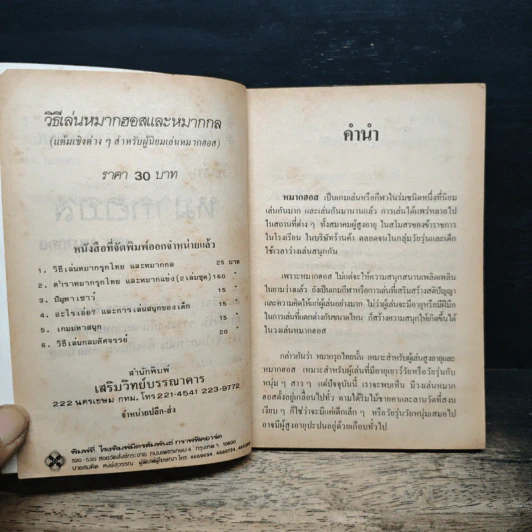 วิธีเล่นหมากฮอสและหมากกล
(แต้มเชิงต่าง ๆ สำหรับผู้นิยมเล่นหมากฮอส)
ราคา 30 บาท
หนังสือที่จัดพิมพ์ออกจำหน่ายแล้ว
1. วิธีเล่นหมากรุกไทย และหมากกล 25 บาท
2. ตำราหมากรุกไทย และหมากแซ่ง (2 เล่มชุด) 160 "
3. ปัญหาเชาว์ 15 "
4. อะไรเอ่ย? และการเล่นสนุกของเด็ก 15 "
5. เกมมหาสนุก 15 "
6. วิธีเล่นกลมหัศจรรย์ 20 "
สำนักพิมพ์
เสริมวิทย์บรรณาคาร
222 นครเขษม กทม. โทร 221-4541 223-9772
จำหน่ายปลีก-ส่ง
พิมพ์ที่ โรงพิมพ์มิตรสัมพันธ์ กราฟฟิคอาร์ต
คำนำ
หมากฮอส เป็นเกมเล่นหรือกีฬาในร่มชนิดหนึ่งที่นิยม
เล่นกันมาก และเล่นกันมานานแล้ว การเล่นได้แพร่หลายไป
ในสถานที่ต่าง ๆ ทั้งสมาคมผู้สูงอายุ ในสโมสรของข้าราชการ
ในโรงเรียน ในบริษัทร้านค้า ตลอดจนในกลุ่มวัยรุ่นและเด็ก
ใช้เวลาว่างเล่นสนุกกัน
เพราะหมากฮอส ไม่แต่จะให้ความสนุกสนานเพลิดเพลิน
ในยามว่างแล้ว ยังเป็นเกมกีฬาหรือการเล่นที่เสริมสร้างสติปัญญา
และความคิดให้แก่ผู้เล่นอย่างมาก ไม่ว่าผู้เล่นจะมีอายุหรือมีฝีมือ
ในการเล่นที่แตกต่างกันขนาดไหน ก็สร้างความสนุกให้เกิดขึ้นได้
ในวงเล่นหมากฮอส
กล่าวกันว่า หมากรุกไทยนั้น เหมาะสำหรับผู้เล่นสูงอายุและ
หมากฮอส เหมาะสำหรับผู้เล่นที่มีอายุเยาว์วัยหรือวัยรุ่นกับ
หนุ่ม ๆ สาว ๆ แต่ปัจจุบันนี้ เราจะพบเห็น มีวงเล่นหมากฮอส
ตั้งอยู่เกลื่อนไปทั่ว ตามใต้ร่มไม้ชายคาและลานวัดที่สงบ
เงียบ ๆ ก็ใช่ว่าจะมีแต่เด็กเล็ก ๆ หรือวัยรุ่นวัยหนุ่มเสมอไป
อาจมีผู้สูงอายุปะปนอยู่ด้วยเกือบทั่วไป